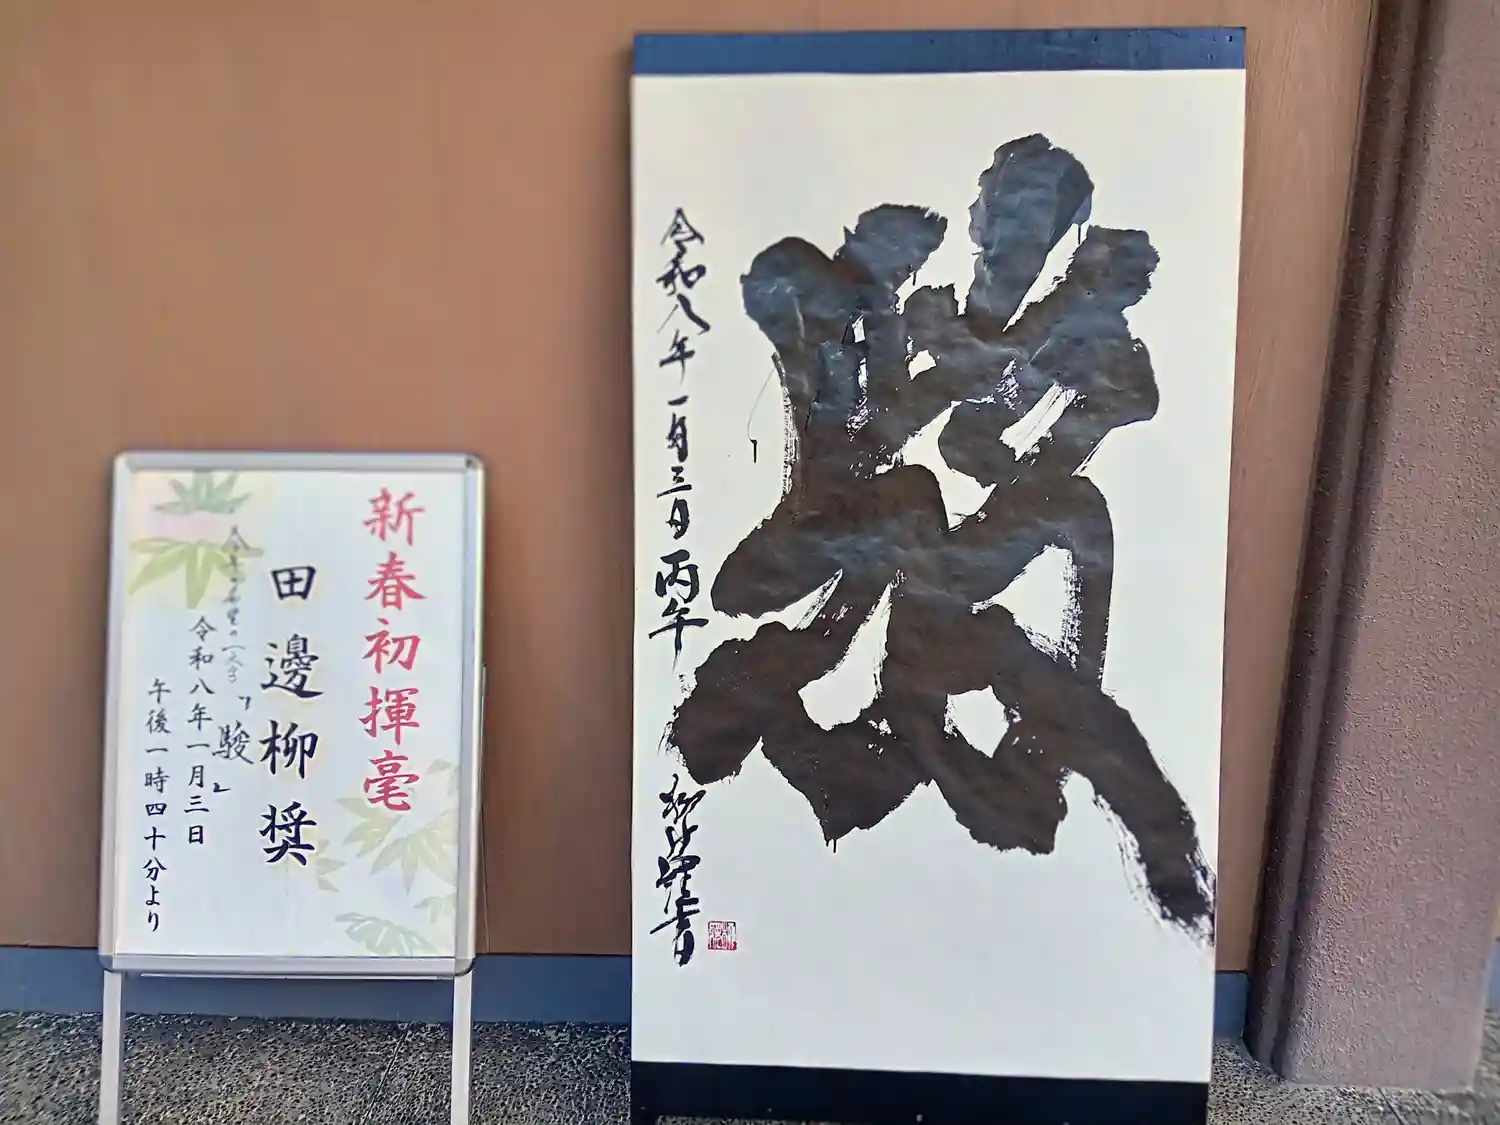 新春初揮毫
田邊柳奨
今年の希望の一文字
「駿」
令和八年一月三日
午後一時四十分より
駿
令和八年一月三日 丙午
柳奨書